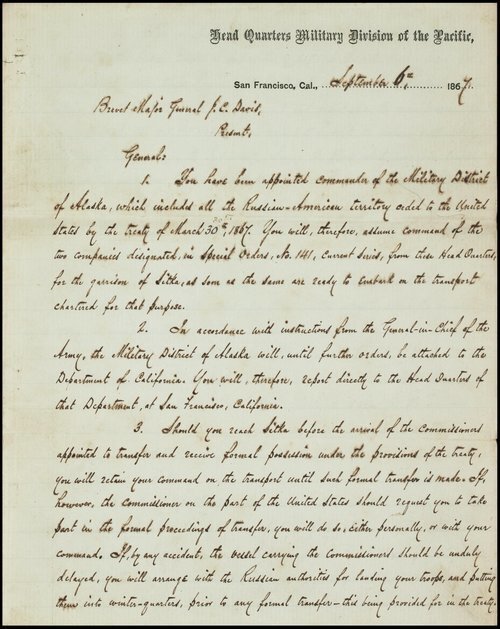 Head Quarters Military Division of the Pacific,
San Francisco, Cal., September 6th 1867.
Brevet Major General J. C. Davis,
Present,
General:
1. You have been appointed commander of the Military District
of Alaska, which includes all the Russian-American territory ceded to the United
States by the treaty of March 30th, 1867. You will, therefore, assume command of the
two companies designated, in Special Orders, No. 141, current series, from these Head Quarters,
for the garrison of Sitka, as soon as the same are ready to embark on the transport
chartered for that purpose.
2. In accordance with instructions from the General-in-Chief of the
Army, the Military District of Alaska will, until further orders, be attached to the
Department of California. You will, therefore, report directly to the Head Quarters of
that Department, at San Francisco, California.
3. Should you reach Sitka before the arrival of the commissioners
appointed to transfer and receive formal possession under the provisions of the treaty,
you will retain your command on the transport until such formal transfer is made. If,
however, the commissioner on the part of the United States should request you to take
part in the formal proceedings of transfer, you will do so, either personally, or with your
command. If, by any accident, the vessel carrying the commissioners should be unduly
delayed, you will arrange with the Russian authorities for landing your troops, and putting
them into winter-quarters, prior to any formal transfer—this being provided for in the treaty.